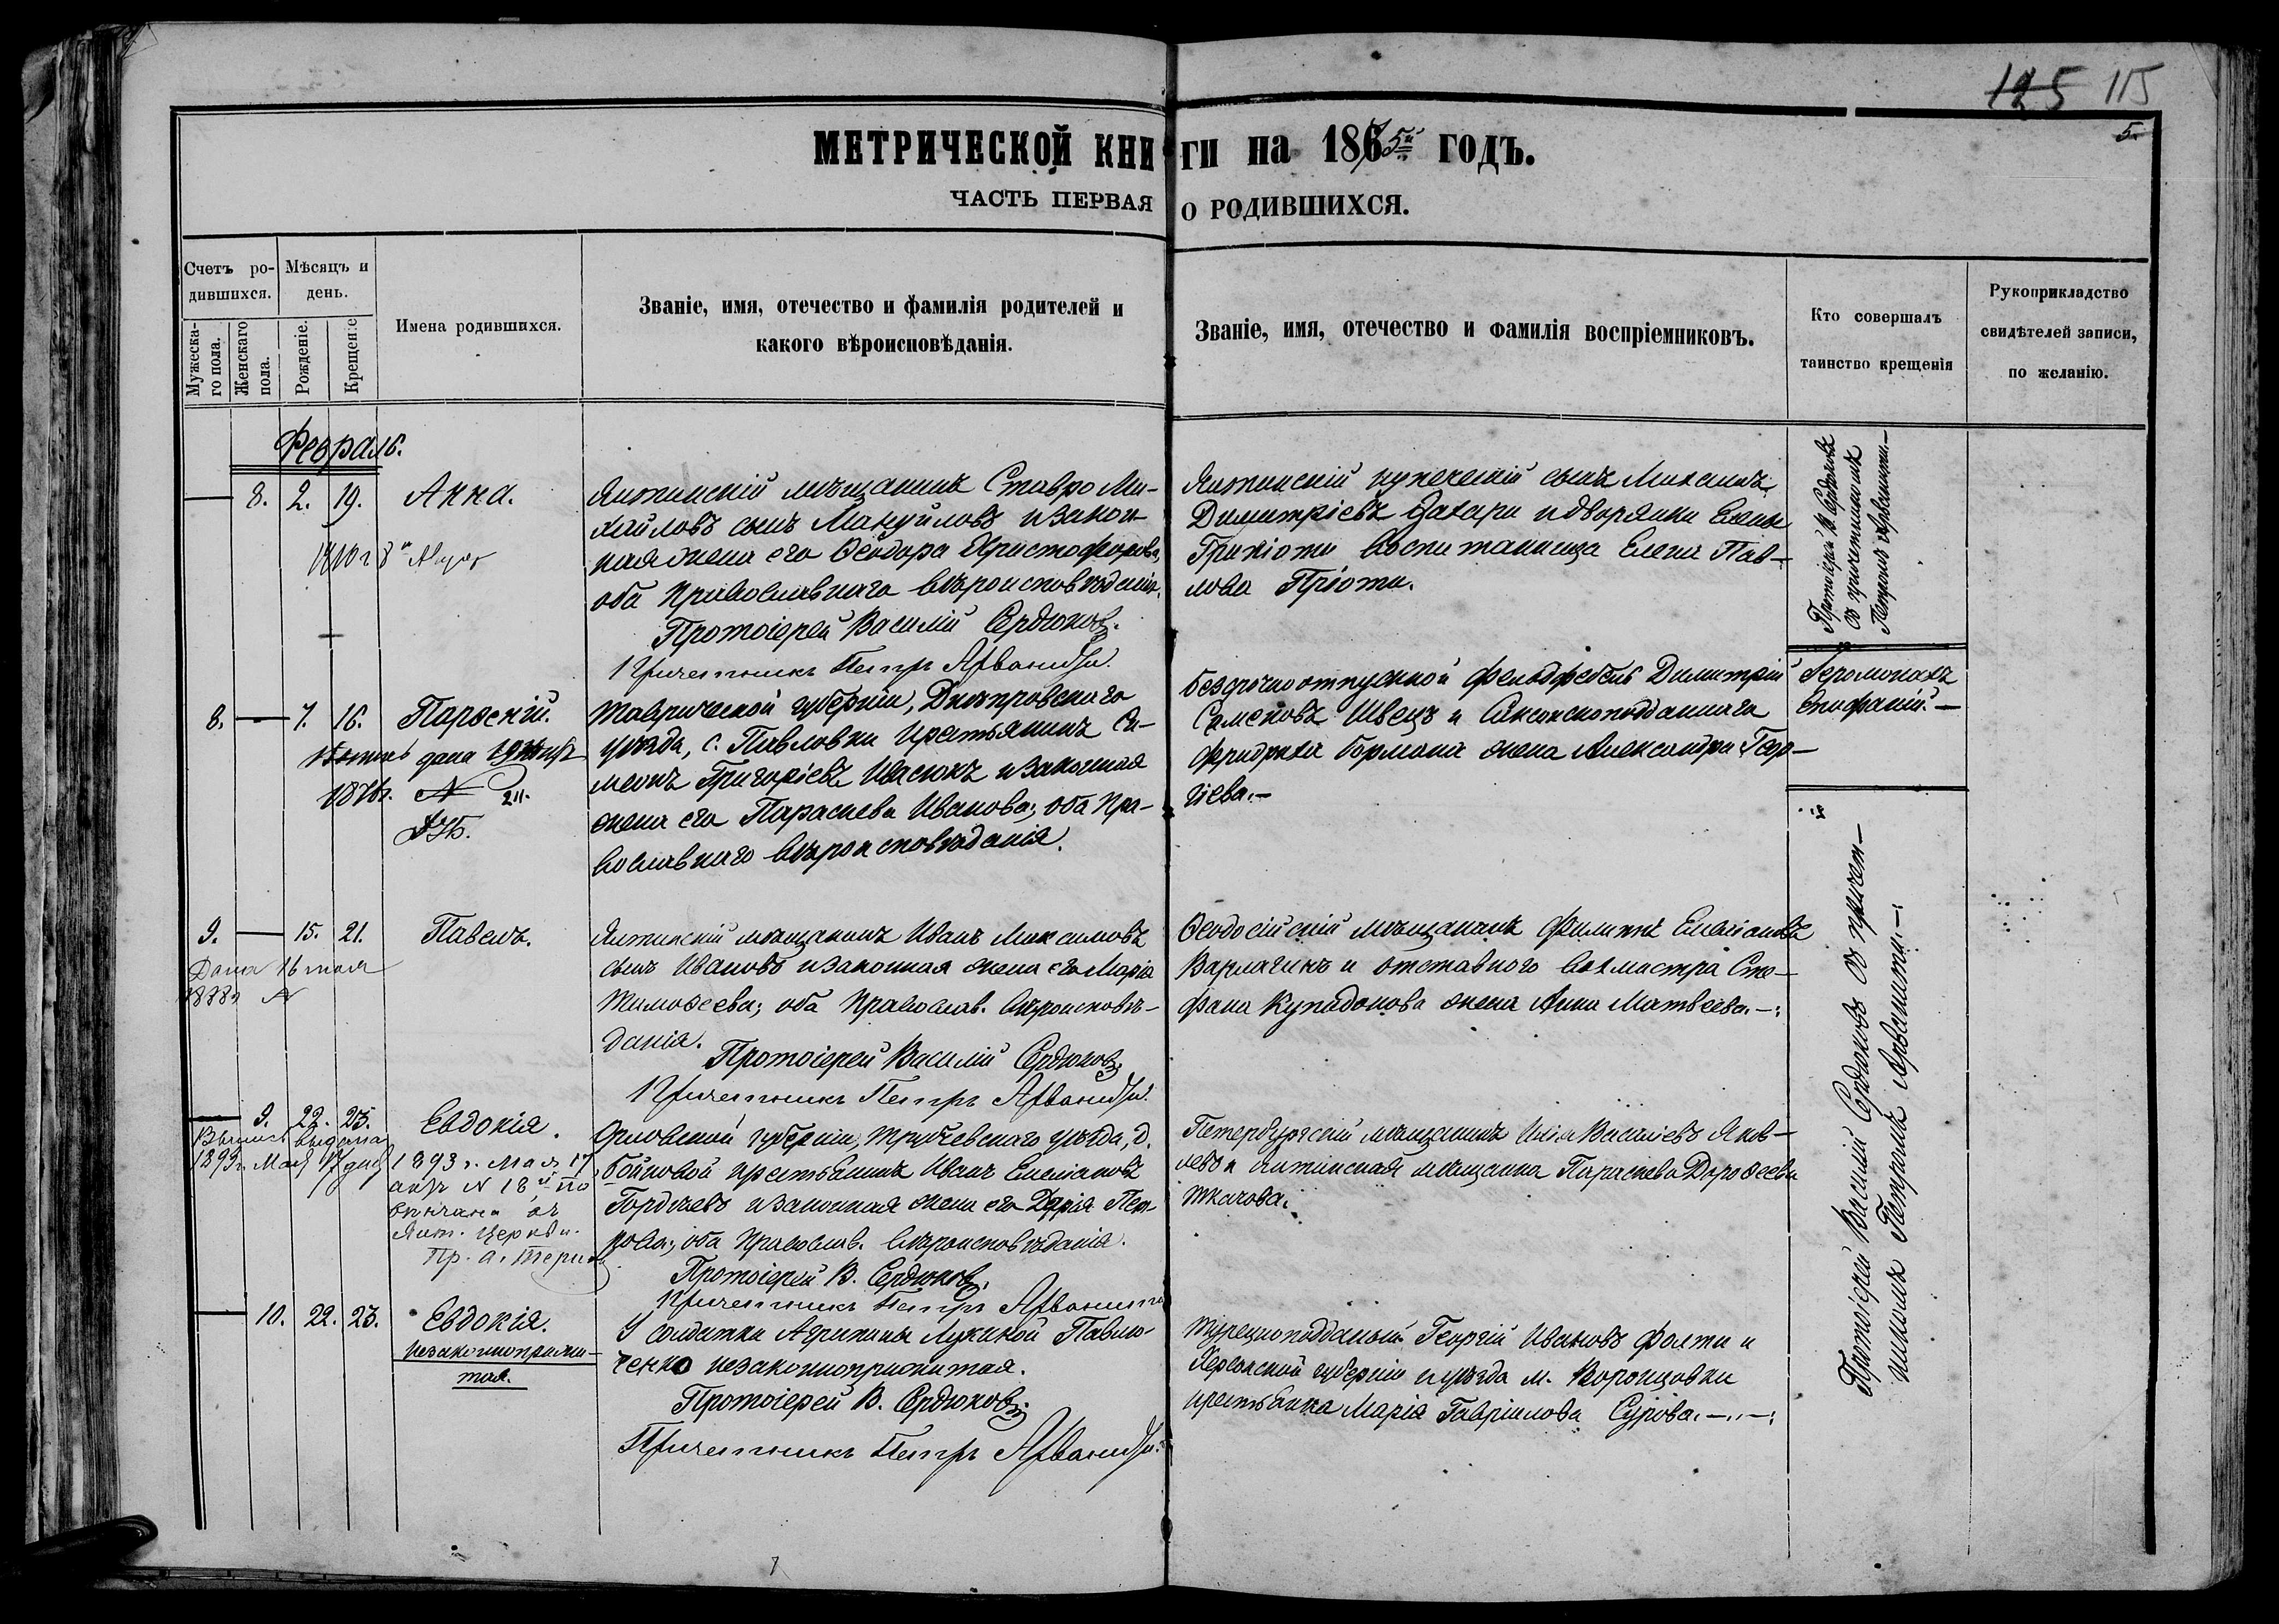 125 115
5.
МЕТРИЧЕСКОЙ КНИГИ на 1875й годъ.
ЧАСТЬ ПЕРВАЯ О РОДИВШИХСЯ.
Счетъ родившихся.
Мужескаго пола.
Женскаго пола.
Мѣсяцъ и день.
Рожденіе.
Крещеніе
Имена родившихся.
Званіе, имя, отечество и фамилія родителей и
какого вѣроисповѣданія.
Званіе, имя, отечество и фамилія воспріемниковъ.
Кто совершалъ
таинство крещенія
Рукоприкладство
свидѣтелей записи,
по желанію.
Февраль.
8. 2. 19. Анна.
Ялтинскій мѣщанинъ Ставро Ми-
хайловъ сынъ Мануйловъ и закон-
ная жена его Ѳеодора Христофорова,
оба православнаго вѣроисповѣданія.
Протоіерей Василій Сердюковъ.
Причетникъ Петръ Арванити.
Ялтинскій купеческій сынъ Михаилъ
Димитріевъ Захари и дворянки Елены
воспитаница Елена Пав-
лова Пріоти.
Протоіерей В. Сердюковъ
съ причетникомъ
Петромъ Арванити.—
8. 7. 16. Парѳеній.
1876г. №
Таврической губерніи, Днѣпровскаго
уѣзда, с. Павловки крестьянинъ Си-
меонъ Григоріевъ Ивасюкъ и законная
жена его Параскева Иванова; оба пра-
вославнаго вѣроисповѣданія.
безсрочноотпускной фельдфебель Димитрій
Семеновъ Швецъ и Саксонскоподданнаго
Фридриха Бормана жена Александра Геор-
гіева.—
Іеромонахъ
Епифаній.—
9. 15. 21. Павелъ.
Дана 16 мая
1888г №
Ялтинскій мѣщанинъ Иванъ Максимовъ
сынъ Ивановъ и законная жена его Марія
Тимоѳеева; оба православ. вѣроисповѣ-
данія.
Протоіерей Василій Сердюковъ.
Причетникъ Петръ Арванити.
Ѳеодосійскій мѣщанинъ Филиппъ Емеліановъ
Варлагинъ и отставного вахмистра Сте-
фана Купидонова жена Анна Матвеева.—
9. 22. 23. Евдокія.
Выпис. выдана
1893г. Мая 17 дня
1893 г. Мая 17
№ 18й по
Ялт. Церкви.
Орловской губерніи, Трубчевскаго уѣзда, д.
Бойковой крестьянинъ Иванъ Емеліановъ
Гордѣевъ и законная жена его Дарія Пет-
рова; оба православ. вѣроисповѣданія.
Протоіерей В. Сердюковъ.
Причетникъ Петръ Арванити
Петербургскій мѣщанинъ Илія Василіевъ Яков-
левъ и Ялтинская мѣщанка Параскева Дороѳеева
Ткачова.
10. 22. 23. Евдокія.
незаконноприжи-
тая.
У солдатки Агрипины Лукиной Павлю-
ченко незаконноприжитая.
Протоіерей В. Сердюковъ.
Причетникъ Петръ Арванити.
Турецкоподданый Георгій Ивановъ Фолти и
Херсонской губерніи и уѣзда м. Воронцовки
крестьянка Марія Гавріилова Сурова.—
Протоіерей Василій Сердюковъ съ причет-
никомъ Петромъ Арванити.—